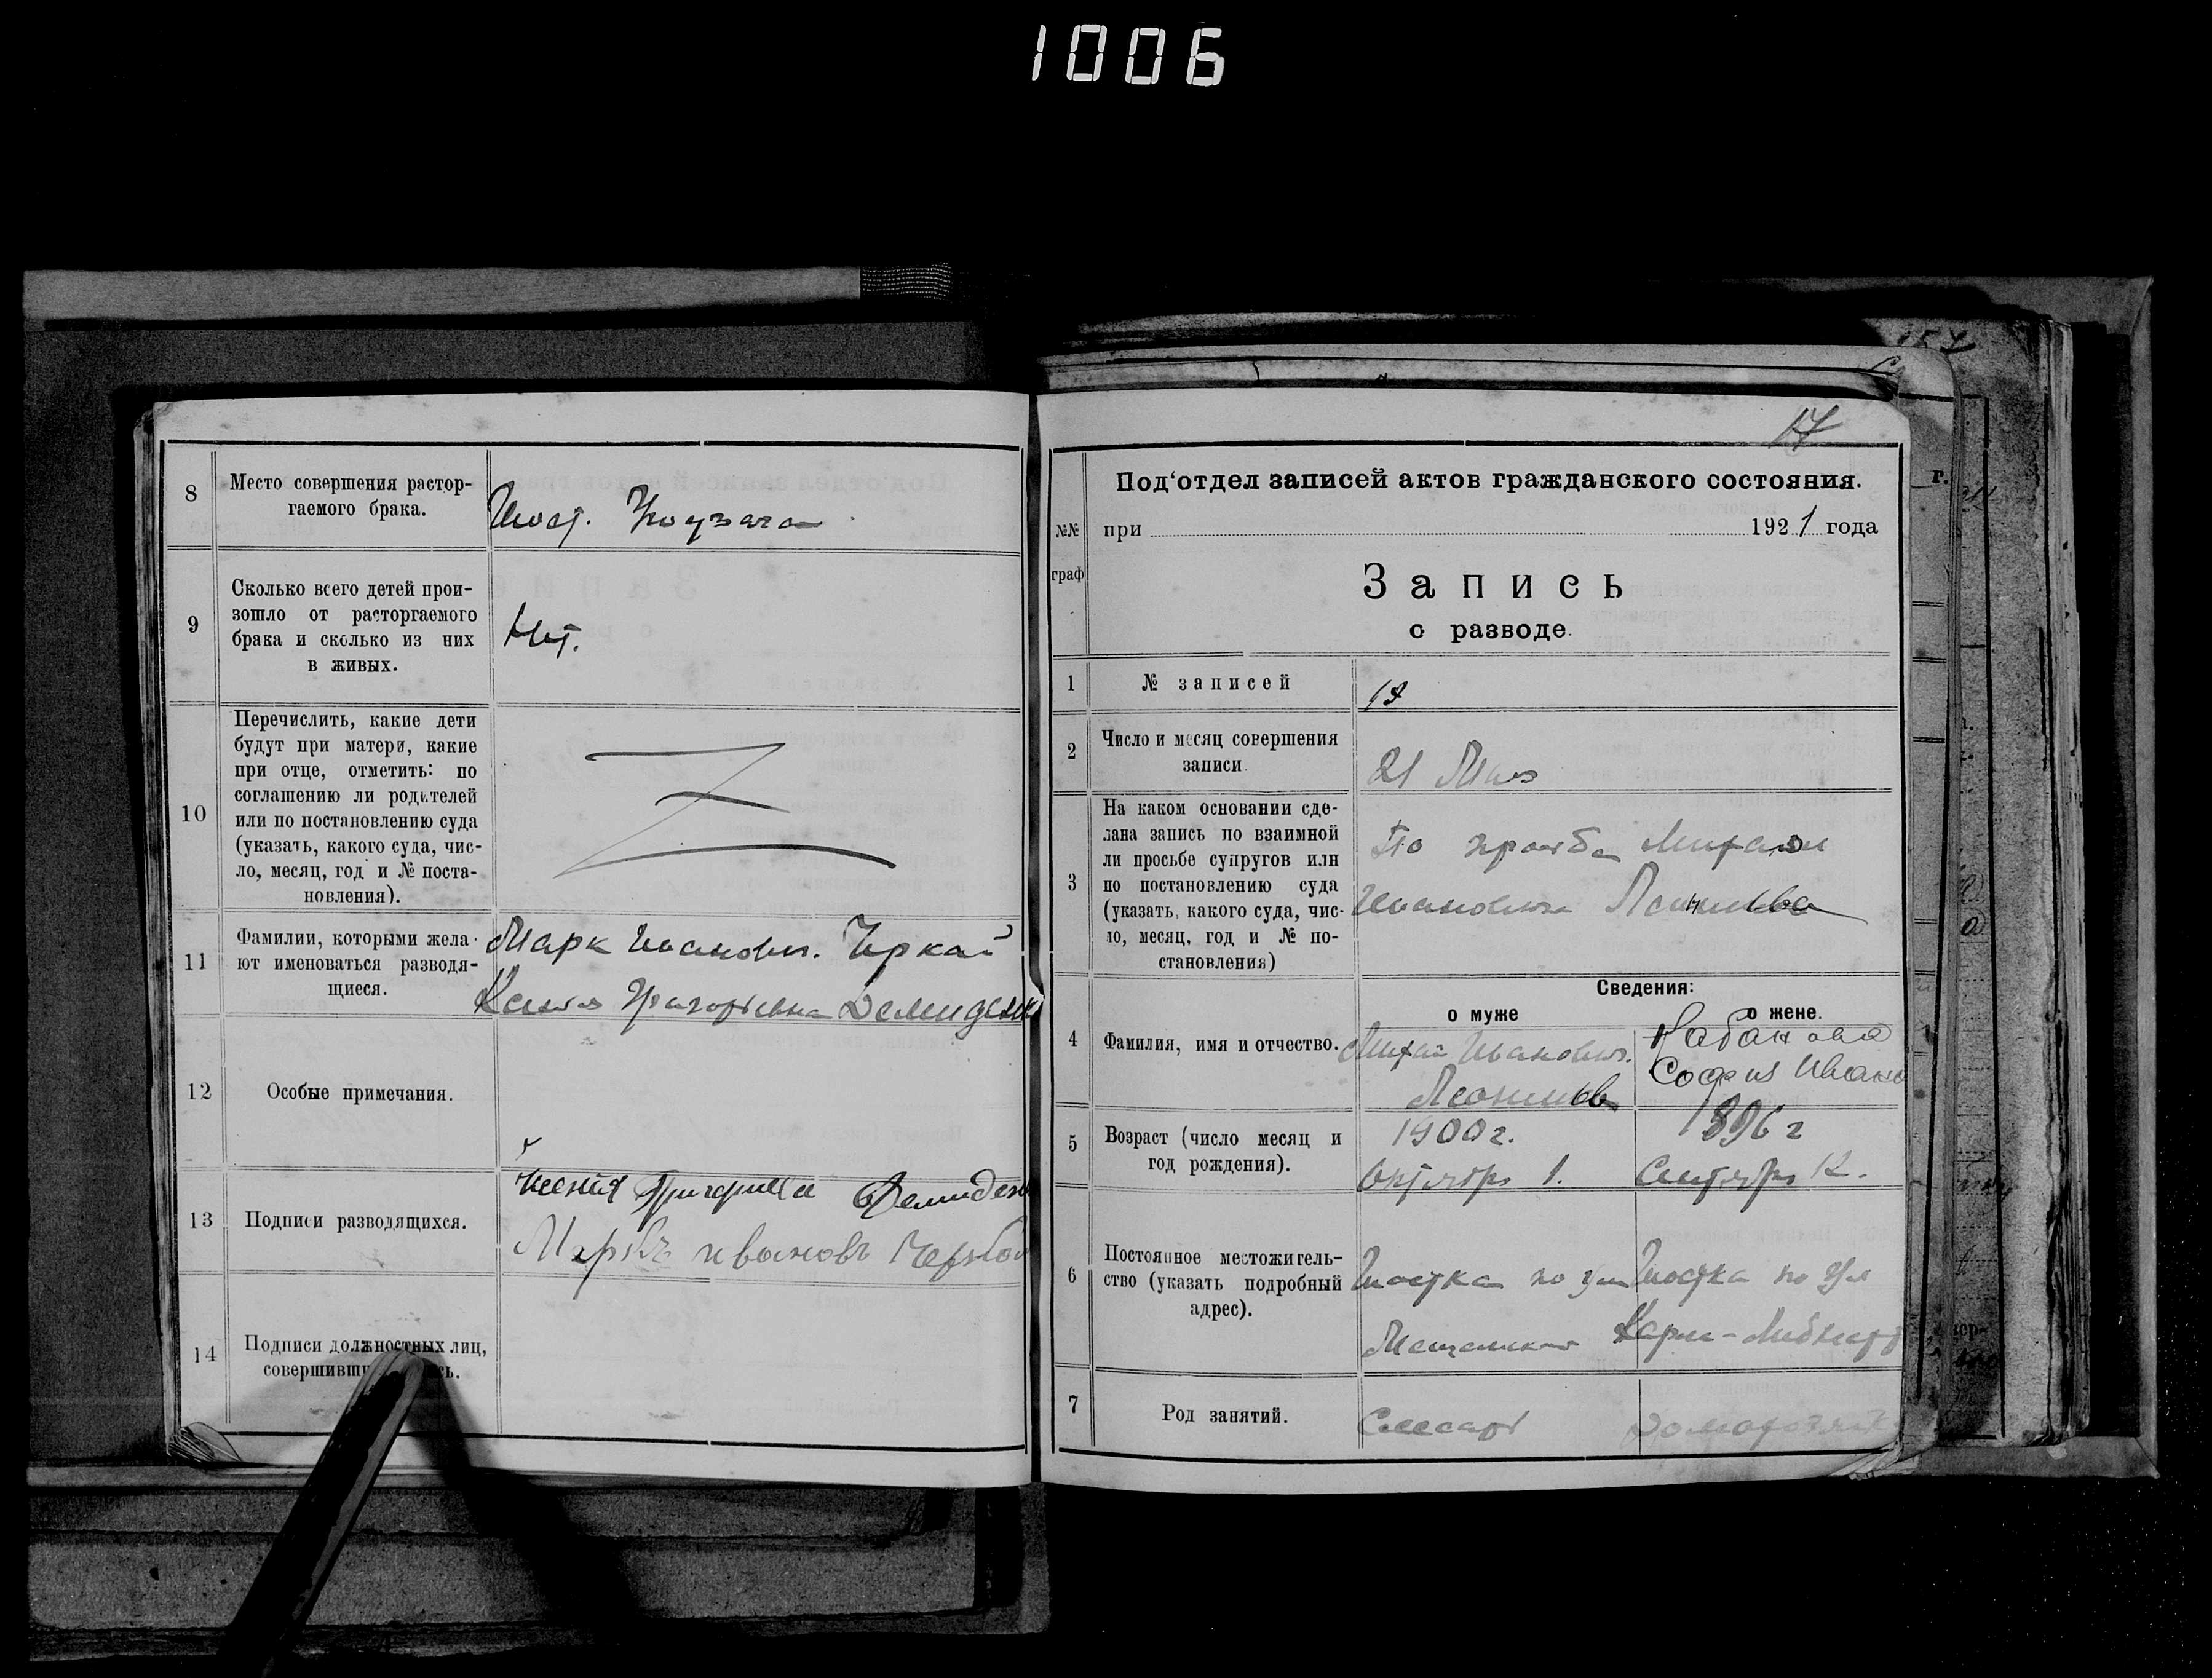 1006
8
Место совершения растор-
гаемого брака.
9
Сколько всего детей прои-
зошло от расторгаемого
брака и сколько из них
в живых.
Нет.
10
Перечислить, какие дети
будут при матери, какие
при отце, отметить: по
соглашению ли родителей
или по постановлению суда
(указать, какого суда, чис-
ло, месяц, год и № поста-
новления).
11
Фамилии, которыми жела-
ют именоваться разводя-
щиеся.
Марк Иванович.
Ксения Григорьевна Демиденко
12
Особые примечания.
13
Подписи разводящихся.
Ксения Демиденко
Марко Иванов
14
Подписи должностных лиц,
17
Под‘отдел записей актов гражданского состояния.
№№
граф
при 1921 года
Запись
о разводе.
1
№ записей
2
Число и месяц совершения
записи.
21 Мая
3
На каком основании сде-
лана запись по взаимной
ли просьбе супругов или
по постановлению суда
(указать, какого суда, чис-
ло, месяц, год и № по-
становления)
По просьбе Михаила
Ивановича
Сведения:
о муже о жене.
4
Фамилия, имя и отчество.
Михаил Иванович. Кабанова
София Ивано
5
Возраст (число месяц и
год рождения).
1900 г. 1896 г
Октября 1. Сентября 12.
6
Постоянное местожитель-
ство (указать подробный
адрес).
Шостка по ул Шостка по ул
Карл-Либкнехт
7
Род занятий.
Слесарь
г.